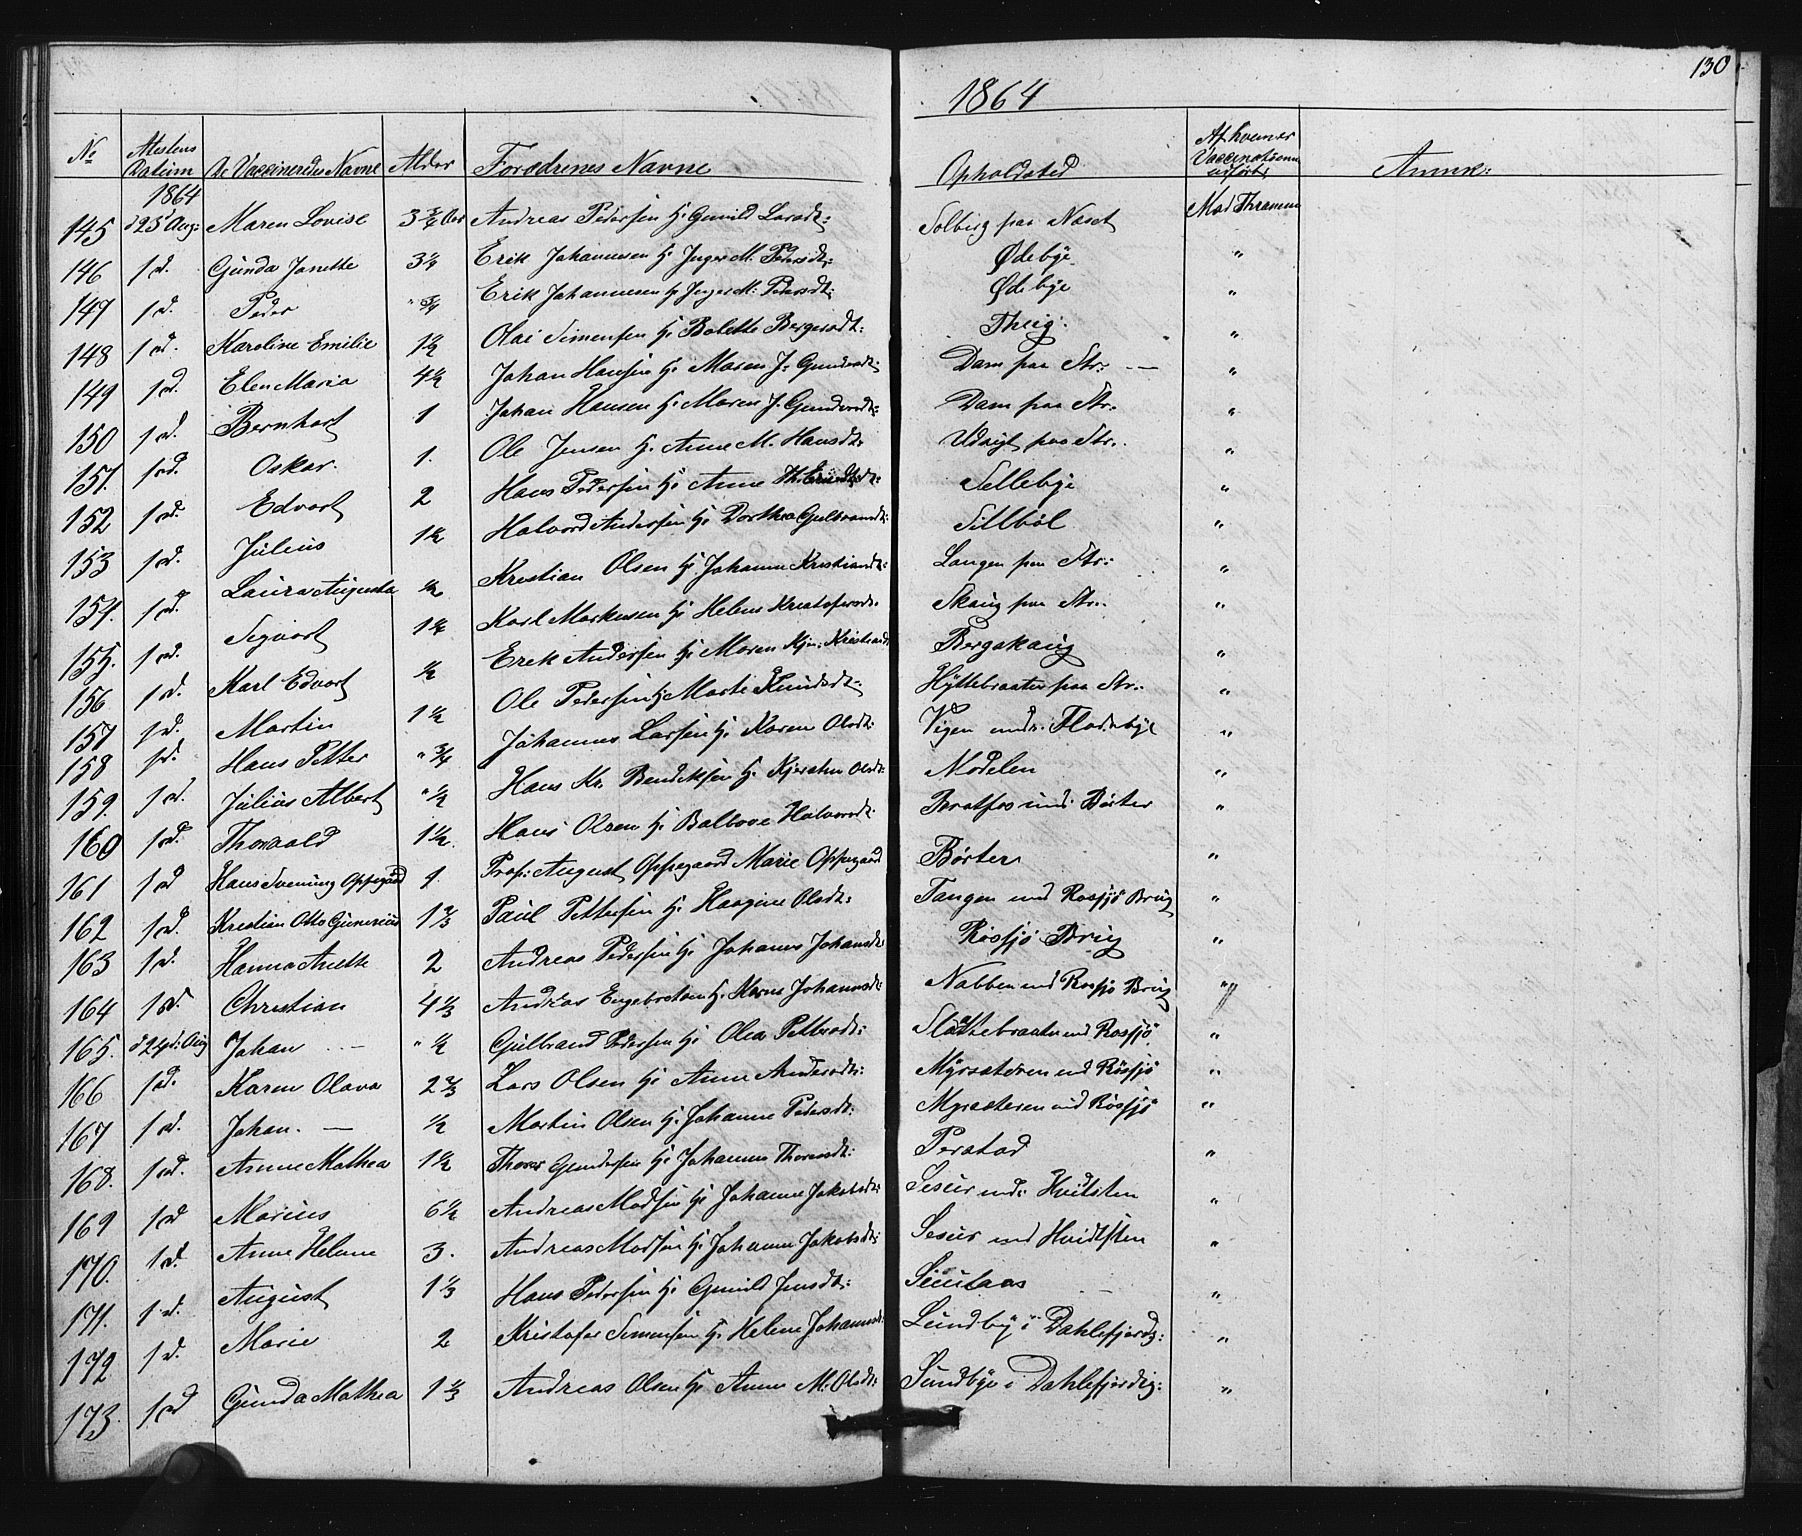 130
1864
No | Attestens Datum | De Vaccineredes Navne | Alder | Forældrenes Navne | Opholdsted | Af hvem er Vaccinationen udført | Anmk:
1864
145 | d 23d Aug: | Maren Lovise | 3 3/4 Aar | Andreas Pedersen H: Gunild Larsdt: | Solberg paa Næset | Mad Thransen
146 | 1 d. | Gunda Janette | 3 1/4 | Erik Johannesen H: Inger M. Pedersdt: | Ødebye | "
147 | 1 d. | Peder | " 3/4 | Erik Johannesen H: Inger M: Pedersdt: | Ødebye | "
148 | 1 d. | Karoline Emilie | 1 1/2 | Olai Simensen H: Bolette Bergersdt: | Theig. | "
149 | 1 d. | Elen Maria | 4 1/2 | Johan Hansen H: Maren J. Gundersdt: | Dam paa Str: — | "
150 | 1 d. | Bernhart | 1 | Johan Hansen H: Maren J. Gundersdt: | Dam paa Str: | "
151. | 1 d. | Oskar. | 1. | Ole Jensen H. Anne M. Hansdt: | Udsigt paa Str. | "
152 | 1 d. | Edvart | 2 | Hans Pedersen H: Anne | Sellebye | "
153 | 1 d. | Julius | 1 1/2 | Halvord Andersen H: Dorthea Gulbransdt: | Sillböl | "
154. | 1 d. | Laura Augusta | 1/2 | Kristian Olsen H: Johanne Kristiansdt: | Langen paa Str: | "
155. | 1 d. | Sigvart | 1 1/4 | Karl Markusen H: Helene Kristofersdt. | Skaug paa Str. | "
156 | 1 d. | Karl Edvart | 1/2 | Erik Andersen H: Maren Kjn. Kristiansdt | Bergskaug | "
157 | 1 d. | Martin | 1 1/2 | Ole Pedersen H: Marte Knudsdt: | Hyttebraaten paa Str. | "
158 | 1 d. | Hans Petter | " 3/4 | Johannes Larsen H: Karen Olsdt: | Vigen und. Fladebye | "
159. | 1 d. | Julius Albert | " 1/2 | Hans Kr. Bendiksen H. Kjersten Olsdt: | Modelen | "
160 | 1 d. | Thorvald | 1 1/2. | Hans Olsen H: Balbove Halvorsdt: | Bratfos und. Börter | "
161 | 1 d | Hans Svenning Oppegård | 1. | Prop: August Oppegaard Marie Oppegaard | Börter | "
162 | 1 d. | Kristian Otto Gunerius | 1 2/3 | Paul Pettersen H: Haagine Olsdt: | Tangen und Rosjö Brug | "
163 | 1 d. | Hanna Anette | 2 | Andreas Pedersen H: Johanne Johansdt | Rösjö Brug | "
164 | 1 d. | Christian | 4 1/3 | Andreas Engebretsen H. Maren Johannesdt: | Nabben und Rosjö Brug | "
165. | d 24d: Aug | Johan — | " 1/2 | Gulbrand Pedersen H: Olea Pettersdt: | Slåttebraaten und Rosjö. | "
166 | 1 d. | Karen Olava | 2 2/3 | Lars Olsen H: Anne Andersdt: | Myrsæteren und Rösjö | "
167 | 1 d. | Johan. — | 1/2 | Martin Olsen H: Johanne Pedersdt: | Myrsæteren und Rösjö | "
168. | 1 d. | Anne Mathea | 1 1/2 | Thorer Gundersen H: Johanne Thorersdt: | Perstad | "
169 | 1 d | Marius | 6 1/2 | Andreas Madsen H: Johanne Jakobsdt: | Sesur und: Hvidsten | "
170. | 1 d. | Anne Helene | 3. | Andreas Madsen H: Johanne Jakobsdt: | Sesur und Hvidsten | "
171. | 1 d. | August | 1 1/3 | Hans Pedersen H: Gunild Jensdt: | "
172 | 1 d. | Marie | 2 | Kristofer Simensen H: Helene Johannesdt: | Sundby i Dahlefjerdg: | "
173. | 1 d | Gunda Mathea | 1 1/3 | Andreas Olsen H: Anne M. Olsdt: | Sundbye i Dahlefjerdig: | "